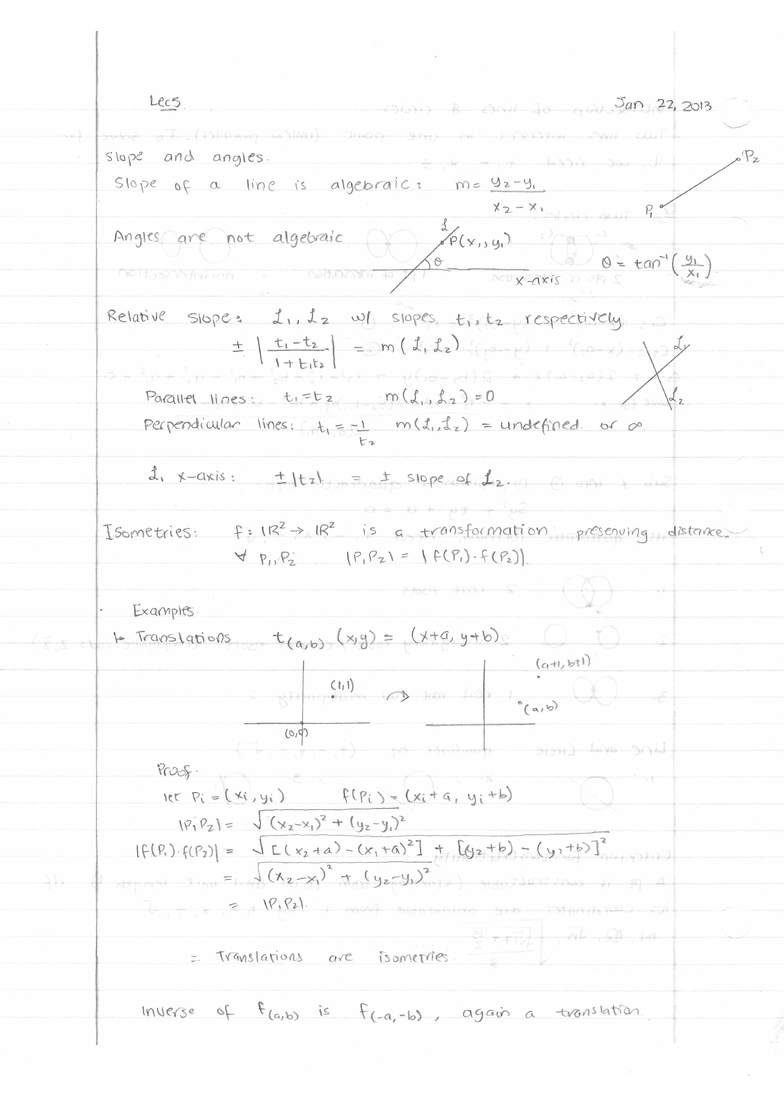 Lec5 Jan 22, 2013
Slope and angles.
Slope of a line is algebraic: m = (y₂-y₁)/(x₂-x₁) P₁ P₂
Angles are not algebraic L P(x₁, y₁) θ x-axis θ = tan⁻¹(y₁/x₁)
Relative Slope: L₁, L₂ w/ slopes t₁, t₂ respectively
± |(t₁-t₂)/(1+t₁t₂)| = m(L₁ L₂) L₁ L₂
Parallel lines: t₁=t₂ m(L₁, L₂)=0
Perpendicular lines: t₁ = -1/t₂ m(L₁, L₂) = undefined or ∞
L₁ x-axis: ±|t₂| = ± slope of L₂.
Isometries: f: ℝ² → ℝ² is a transformation preserving distance.
∀ P₁, P₂ |P₁P₂| = |f(P₁)·f(P₂)|
Examples
Translations t(a,b) (x,y) = (x+a, y+b)
(1,1) (0,0) (a+1, b+1) (a,b)
Proof.
let Pi = (xi, yi) f(Pi) = (xi+a, yi+b)
|P₁P₂| = √(x₂-x₁)² + (y₂-y₁)²
|f(P₁)·f(P₂)| = √[(x₂+a) - (x₁+a)²] + [(y₂+b) - (y₁+b)]²
= √(x₂-x₁)² + (y₂-y₁)²
= |P₁P₂|.
∴ Translations are isometries
Inverse of f(a,b) is f(-a,-b), again a translation.